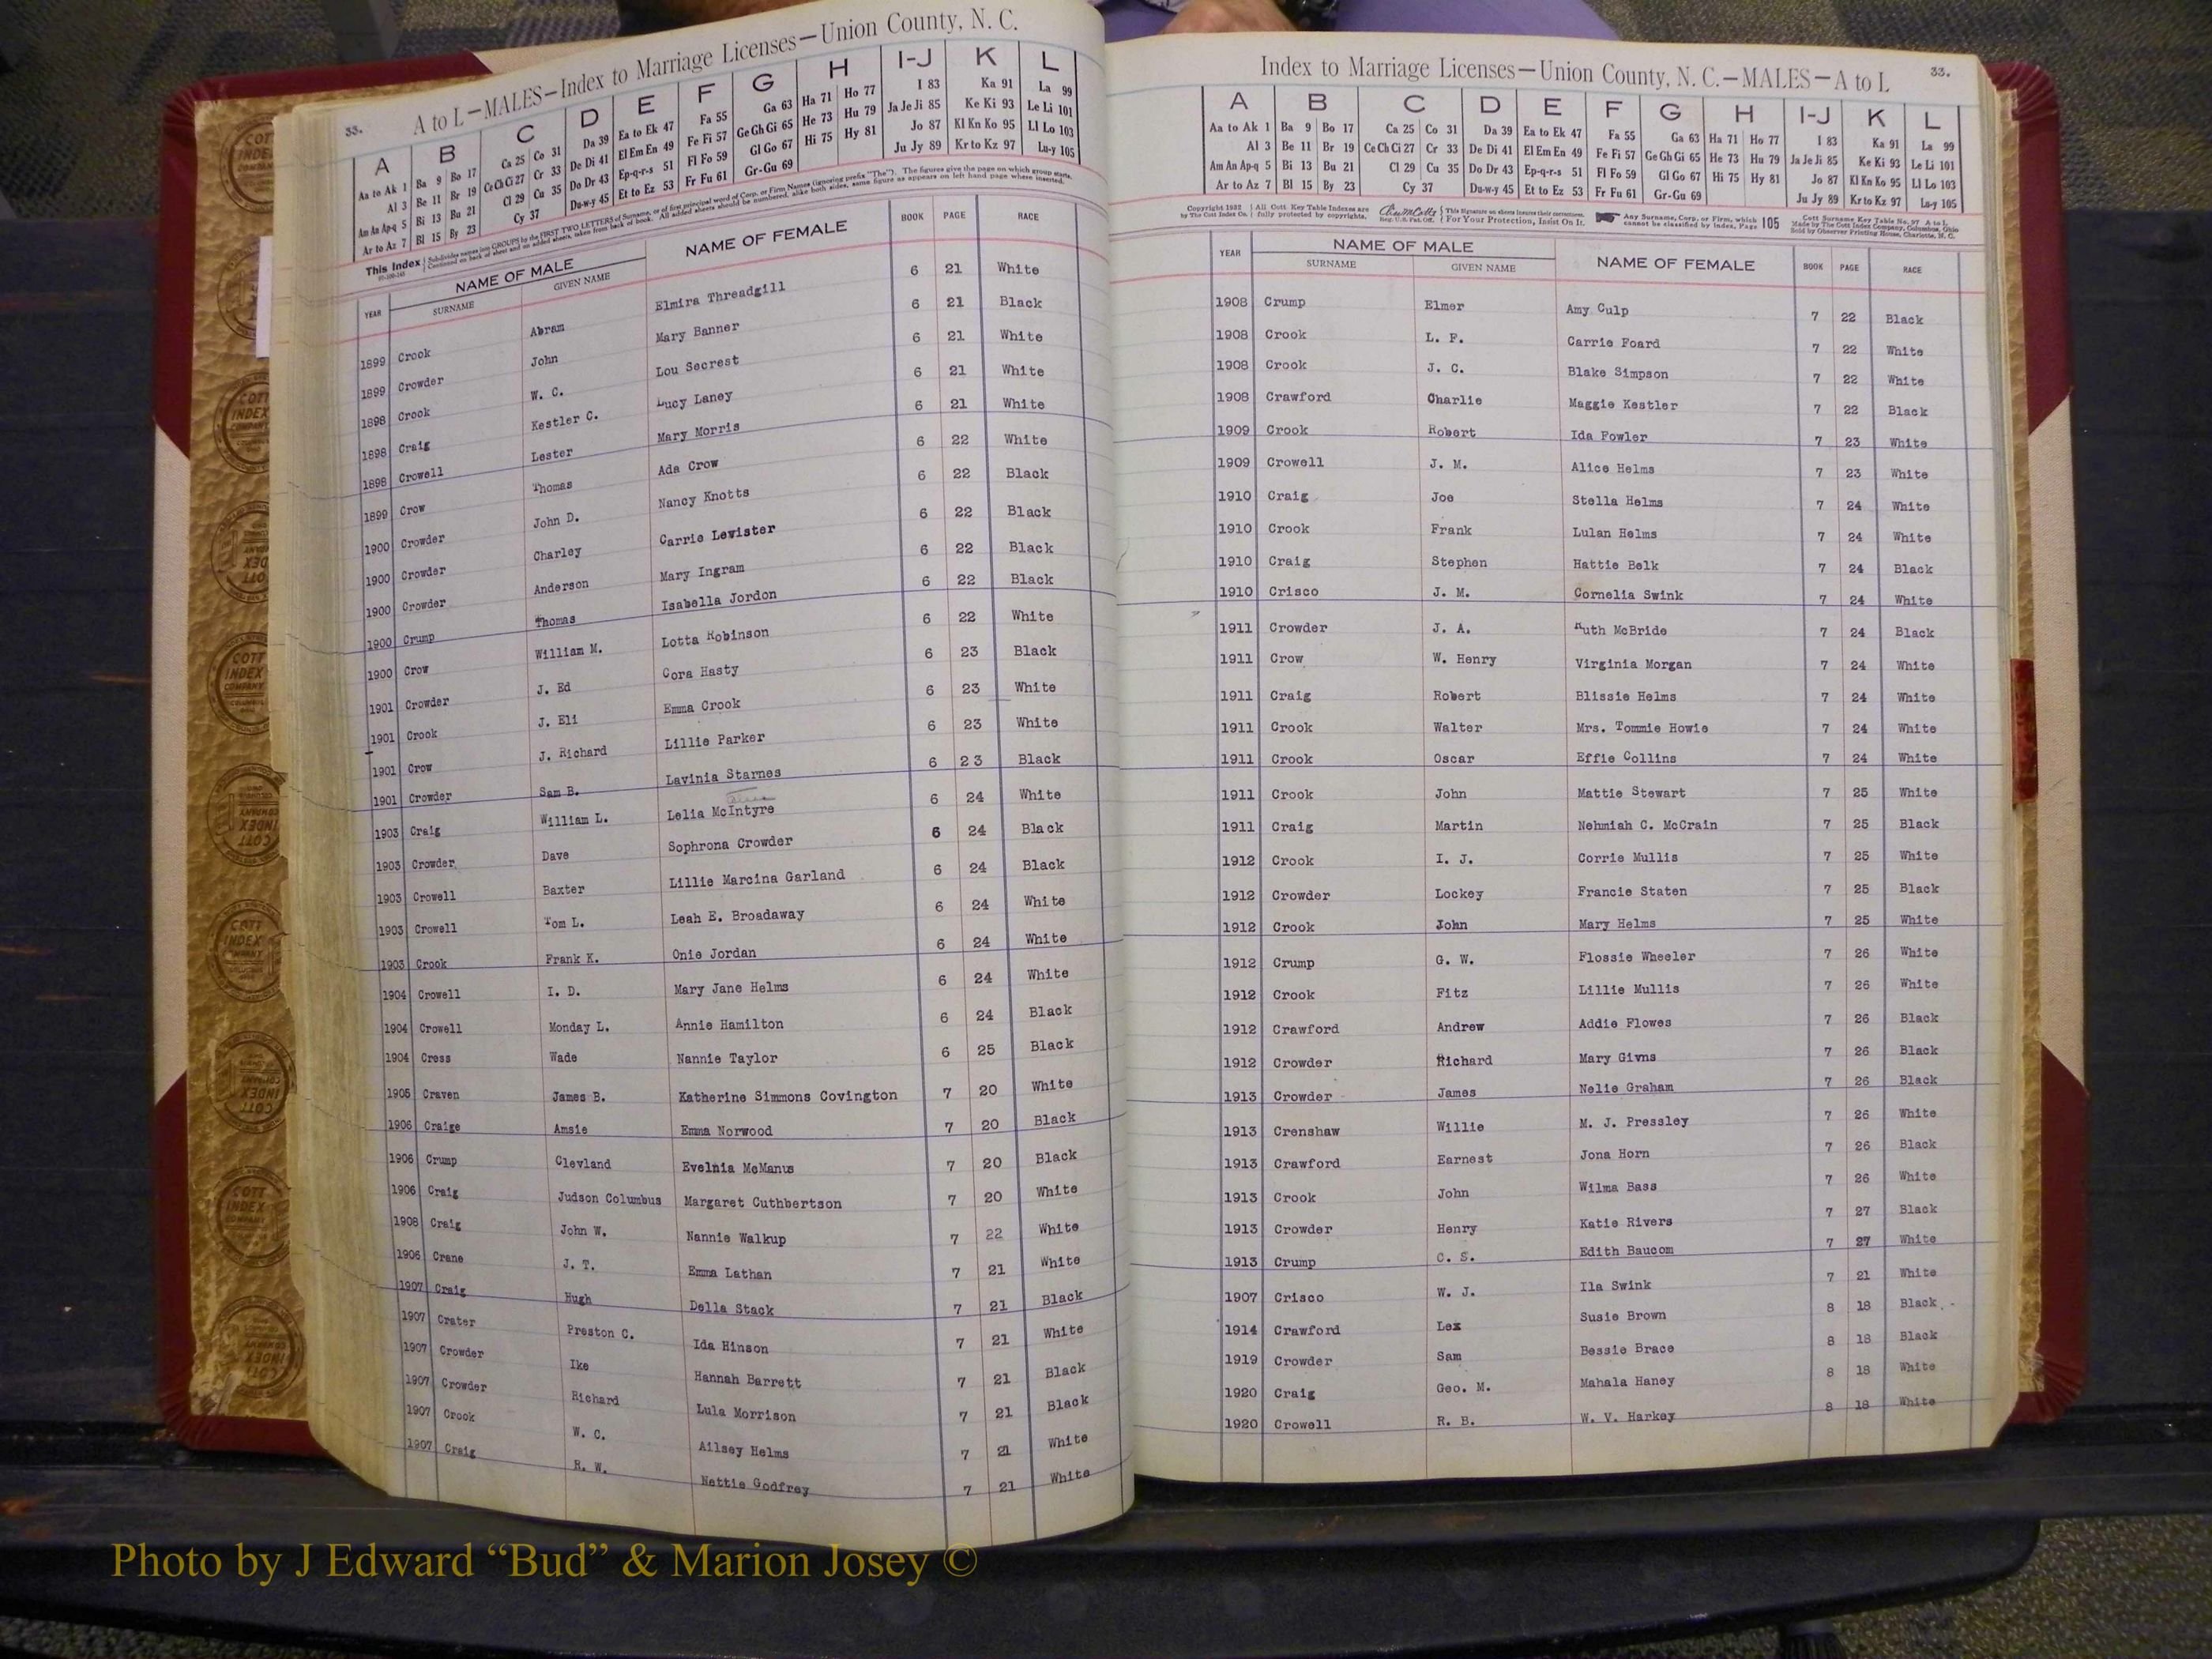 33.
A to L—MALES—Index to Marriage Licenses—Union County, N. C.
A B C D E F G H I-J K L
Aa to Ak 1 Ba 9 Bo 17 Ca 25 Co 31 Da 39 Ea to Ek 47 Fa 55 Ga 63 Ha 71 Ho 77 I 83 Ka 91 La 99
Al 3 Be 11 Br 19 Ce Ch Ci 27 Cr 33 De Di 41 El Em En 49 Fe Fi 57 Ge Gh Gi 65 He 73 Hu 79 Ja Je Ji 85 Ke Ki 93 Le Li 101
Am An Ap-q 5 Bi 13 Bu 21 Cl 29 Cu 35 Do Dr 43 Ep-q-r-s 51 Fl Fo 59 Gl Go 67 Hi 75 Hy 81 Jo 87 Kl Kn Ko 95 Ll Lo 103
Ar to Az 7 Bl 15 By 23 Cy 37 Du-w-y 45 Et to Ez 53 Fr Fu 61 Gr-Gu 69 Ju Jy 89 Kr to Kz 97 Lu-y 105
This Index Sub-divides names into GROUPS by the FIRST TWO LETTERS of Surname, or of first principal word of Corp. or Firm Names (ignoring prefix "The"). The figures give the page on which group starts.
Continued on back of sheet and on added sheets, taken from back of book. All added sheets should be numbered, alike both sides, same figure as appears on left hand page where inserted.
YEAR NAME OF MALE NAME OF FEMALE BOOK PAGE RACE
SURNAME GIVEN NAME
1899 Crook Abram Elmira Threadgill 6 21 White
1899 Crowder John Mary Banner 6 21 Black
1898 Crook W. C. Lou Secrest 6 21 White
1898 Craig Kestler C. Lucy Laney 6 21 White
1898 Crowell Lester Mary Morris 6 21 White
1899 Crow Thomas Ada Crow 6 22 White
1900 Crowder John D. Nancy Knotts 6 22 Black
1900 Crowder Charley Carrie Lewister 6 22 Black
1900 Crowder Anderson Mary Ingram 6 22 Black
1900 Crump Thomas Isabella Jordon 6 22 Black
1900 Crow William M. Lotta Robinson 6 22 White
1901 Crowder J. Ed Cora Hasty 6 23 Black
1901 Crook J. Eli Emma Crook 6 23 White
1901 Crow J. Richard Lillie Parker 6 23 White
1901 Crowder Sam B. Lavinia Starnes 6 23 Black
1903 Craig William L. Lelia McIntyre 6 24 White
1903 Crowder Dave Sophrona Crowder 6 24 Black
1903 Crowell Baxter Lillie Marcina Garland 6 24 Black
1903 Crowell Tom L. Leah E. Broadaway 6 24 White
1903 Crook Frank K. Onie Jordan 6 24 White
1904 Crowell I. D. Mary Jane Helms 6 24 White
1904 Crowell Monday L. Annie Hamilton 6 24 Black
1904 Cress Wade Nannie Taylor 6 25 Black
1905 Craven James B. Katherine Simmons Covington 7 20 White
1906 Craige Amsie Emma Norwood 7 20 Black
1906 Crump Clevland Evelnia McManus 7 20 Black
1906 Craig Judson Columbus Margaret Cuthbertson 7 20 White
1908 Craig John W. Nannie Walkup 7 22 White
1906 Crane J. T. Emma Lathan 7 21 White
1907 Craig Hugh Della Stack 7 21 Black
1907 Crater Preston C. Ida Hinson 7 21 White
1907 Crowder Ike Hannah Barrett 7 21 Black
1907 Crowder Richard Lula Morrison 7 21 Black
1907 Crook W. C. Ailsey Helms 7 21 White
1907 Craig R. W. Nettie Godfrey 7 21 White
Index to Marriage Licenses—Union County, N. C.—MALES—A to L
33.
A B C D E F G H I-J K L
Aa to Ak 1 Ba 9 Bo 17 Ca 25 Co 31 Da 39 Ea to Ek 47 Fa 55 Ga 63 Ha 71 Ho 77 I 83 Ka 91 La 99
Al 3 Be 11 Br 19 Ce Ch Ci 27 Cr 33 De Di 41 El Em En 49 Fe Fi 57 Ge Gh Gi 65 He 73 Hu 79 Ja Je Ji 85 Ke Ki 93 Le Li 101
Am An Ap-q 5 Bi 13 Bu 21 Cl 29 Cu 35 Do Dr 43 Ep-q-r-s 51 Fl Fo 59 Gl Go 67 Hi 75 Hy 81 Jo 87 Kl Kn Ko 95 Ll Lo 103
Ar to Az 7 Bl 15 By 23 Cy 37 Du-w-y 45 Et to Ez 53 Fr Fu 61 Gr-Gu 69 Ju Jy 89 Kr to Kz 97 Lu-y 105
Copyright 1932 All Cott Key Table Indexes are This Signature on sheets insures their correctness. Any Surname, Corp. or Firm, which 105 Cott Surname Key Table No. 97 A to L
by The Cott Index Co. fully protected by copyrights. Reg. U.S. Pat. Off. For Your Protection, Insist On It. cannot be classified by Index, Page Made by The Cott Index Company, Columbus, Ohio
Sold by Observer Printing House, Charlotte, N. C.
YEAR NAME OF MALE NAME OF FEMALE BOOK PAGE RACE
SURNAME GIVEN NAME
1908 Crump Elmer Amy Culp 7 22 Black
1908 Crook L. F. Carrie Foard 7 22 White
1908 Crook J. C. Blake Simpson 7 22 White
1908 Crawford Charlie Maggie Kestler 7 22 Black
1909 Crook Robert Ida Fowler 7 23 White
1909 Crowell J. M. Alice Helms 7 23 White
1910 Craig Joe Stella Helms 7 24 White
1910 Crook Frank Lulan Helms 7 24 White
1910 Craig Stephen Hattie Belk 7 24 Black
1910 Crisco J. M. Cornelia Swink 7 24 White
1911 Crowder J. A. Ruth McBride 7 24 Black
1911 Crow W. Henry Virginia Morgan 7 24 White
1911 Craig Robert Blissie Helms 7 24 White
1911 Crook Walter Mrs. Tommie Howie 7 24 White
1911 Crook Oscar Effie Collins 7 24 White
1911 Crook John Mattie Stewart 7 25 White
1911 Craig Martin Nehmiah C. McCrain 7 25 Black
1912 Crook I. J. Corrie Mullis 7 25 White
1912 Crowder Lockey Francie Staten 7 25 Black
1912 Crook John Mary Helms 7 25 White
1912 Crump G. W. Flossie Wheeler 7 26 White
1912 Crook Fitz Lillie Mullis 7 26 White
1912 Crawford Andrew Addie Flowes 7 26 Black
1912 Crowder Richard Mary Givns 7 26 Black
1913 Crowder James Nelie Graham 7 26 Black
1913 Crenshaw Willie M. J. Pressley 7 26 White
1913 Crawford Earnest Jona Horn 7 26 Black
1913 Crook John Wilma Bass 7 26 White
1913 Crowder Henry Katie Rivers 7 27 Black
1913 Crump C. S. Edith Baucom 7 27 White
1907 Crisco W. J. Ila Swink 7 21 White
1914 Crawford Lex Susie Brown 8 18 Black
1919 Crowder Sam Bessie Brace 8 18 Black
1920 Craig Geo. M. Mahala Haney 8 18 White
1920 Crowell R. B. W. V. Harkey 8 18 White
COTT INDEX COMPANY
Photo by J Edward “Bud” & Marion Josey ©